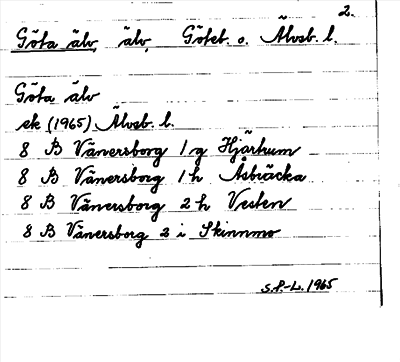 2.
Göta älv, älv, Göteb. o. Älvsb. l.
Göta älv
ek (1965) Älvsb. l.
8 B Vänersborg 1 g Hjärtum
8 B Vänersborg 1 h Åsbräcka
8 B Vänersborg 2 h Vesten
8 B Vänersborg 2 i Skinnmo
S.P.-L. 1965